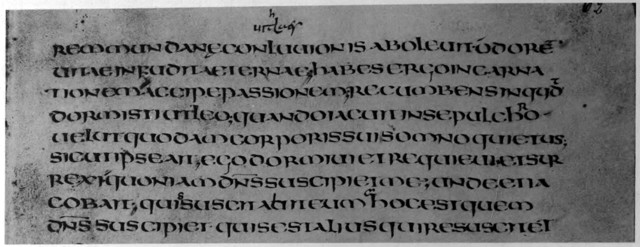 REMMUNDANECONLUUIONISABOLEUIT·ODORE
UITAEINFUDITAETERNAE;HABESERGOINCARNA
TIONEMACCIPEPASSIONEM;RECUMBENSINQUID
DORMISTIUTLEO;QUANDOIACUITINSEPULCHRO·
UELUTQUODAMCORPORISSUISOMNOQUIETUS;
SICUTIPSEAIT;EGODORMIUIETREQUIEUI;ETSUR
REXI;QUONIAMDNSSUSCIPIETME;UNDEETIA
COBAIT;QUISSUSCITABITEUMHOCESTQUEM
DNSSUSCIPIET·QUISESTALIUSQUIRESUSCITET